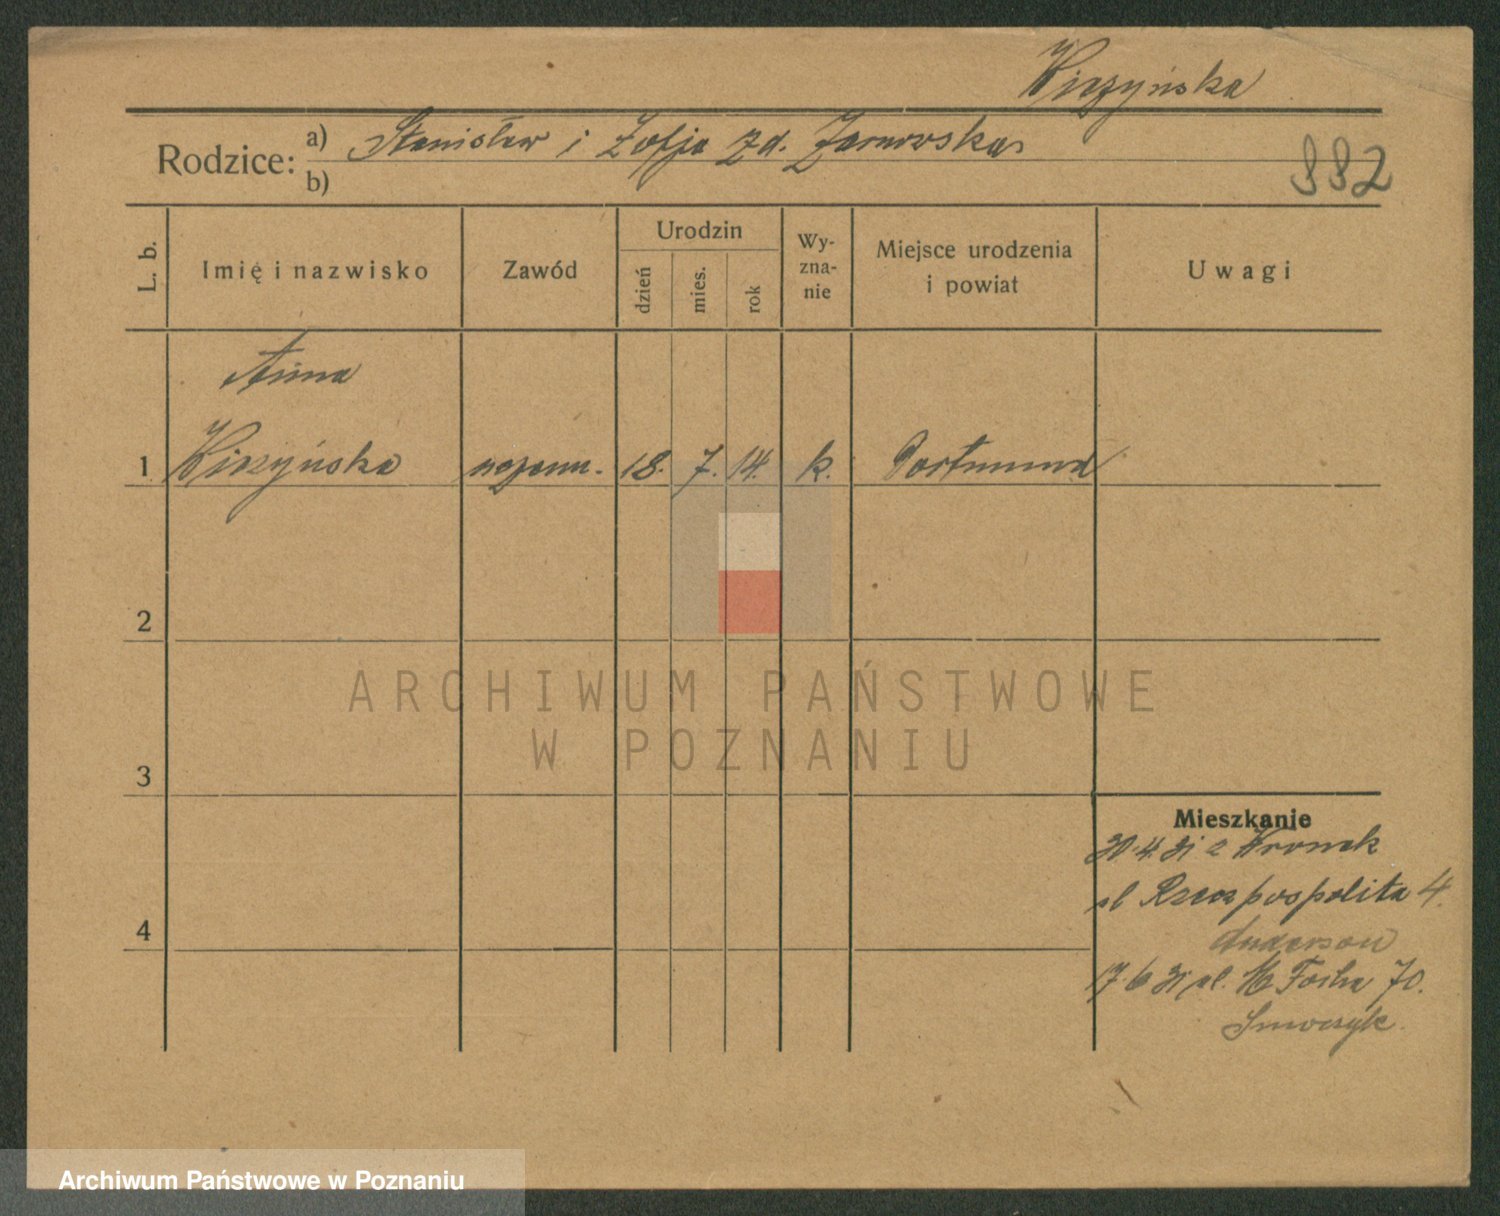 Wiczyńska
Rodzice: a) Stanisław i Zofja zd. Żarnowska
b)
992
L. b. Imię i nazwisko Zawód Urodzin dzień mies. rok Wy-zna-nie Miejsce urodzenia i powiat Uwagi
Anna
1 Wiczyńska 18. 7. 14. k. Dortmund
2
ARCHIWUM PAŃSTWOWE
W POZNANIU
3
Mieszkanie
30.4.31 z Wronek
pl Rzeczpospolita 4.
4
Anderson
17.6 31 M Focha 70.
Archiwum Państwowe w Poznaniu